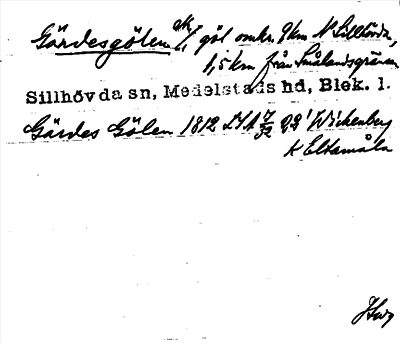 Gärdesgölen ak // göl omkr. 9 km N Sillhövda,
1,5 km från Smålandsgränsen
Sillhövda sn, Medelstads hd, Blek. l.
Gärdes Gölen 1812 LSA 7/32 22' Wickenberg
K Eltamåla